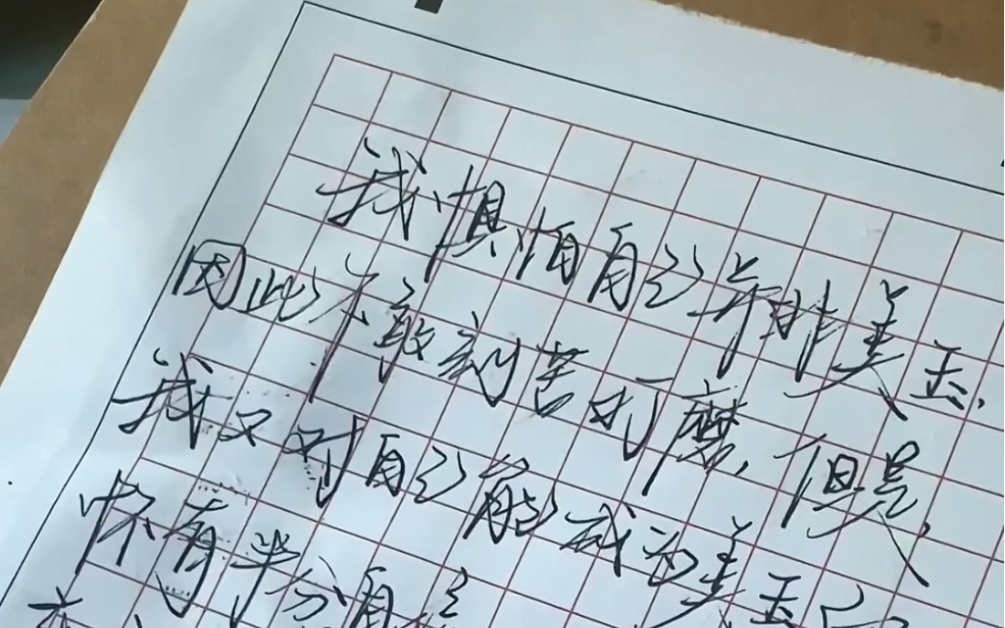 我惧怕自己并非美玉，
因此不敢刻苦打磨，但是，
我又对自己能成为美玉
怀有半分自信